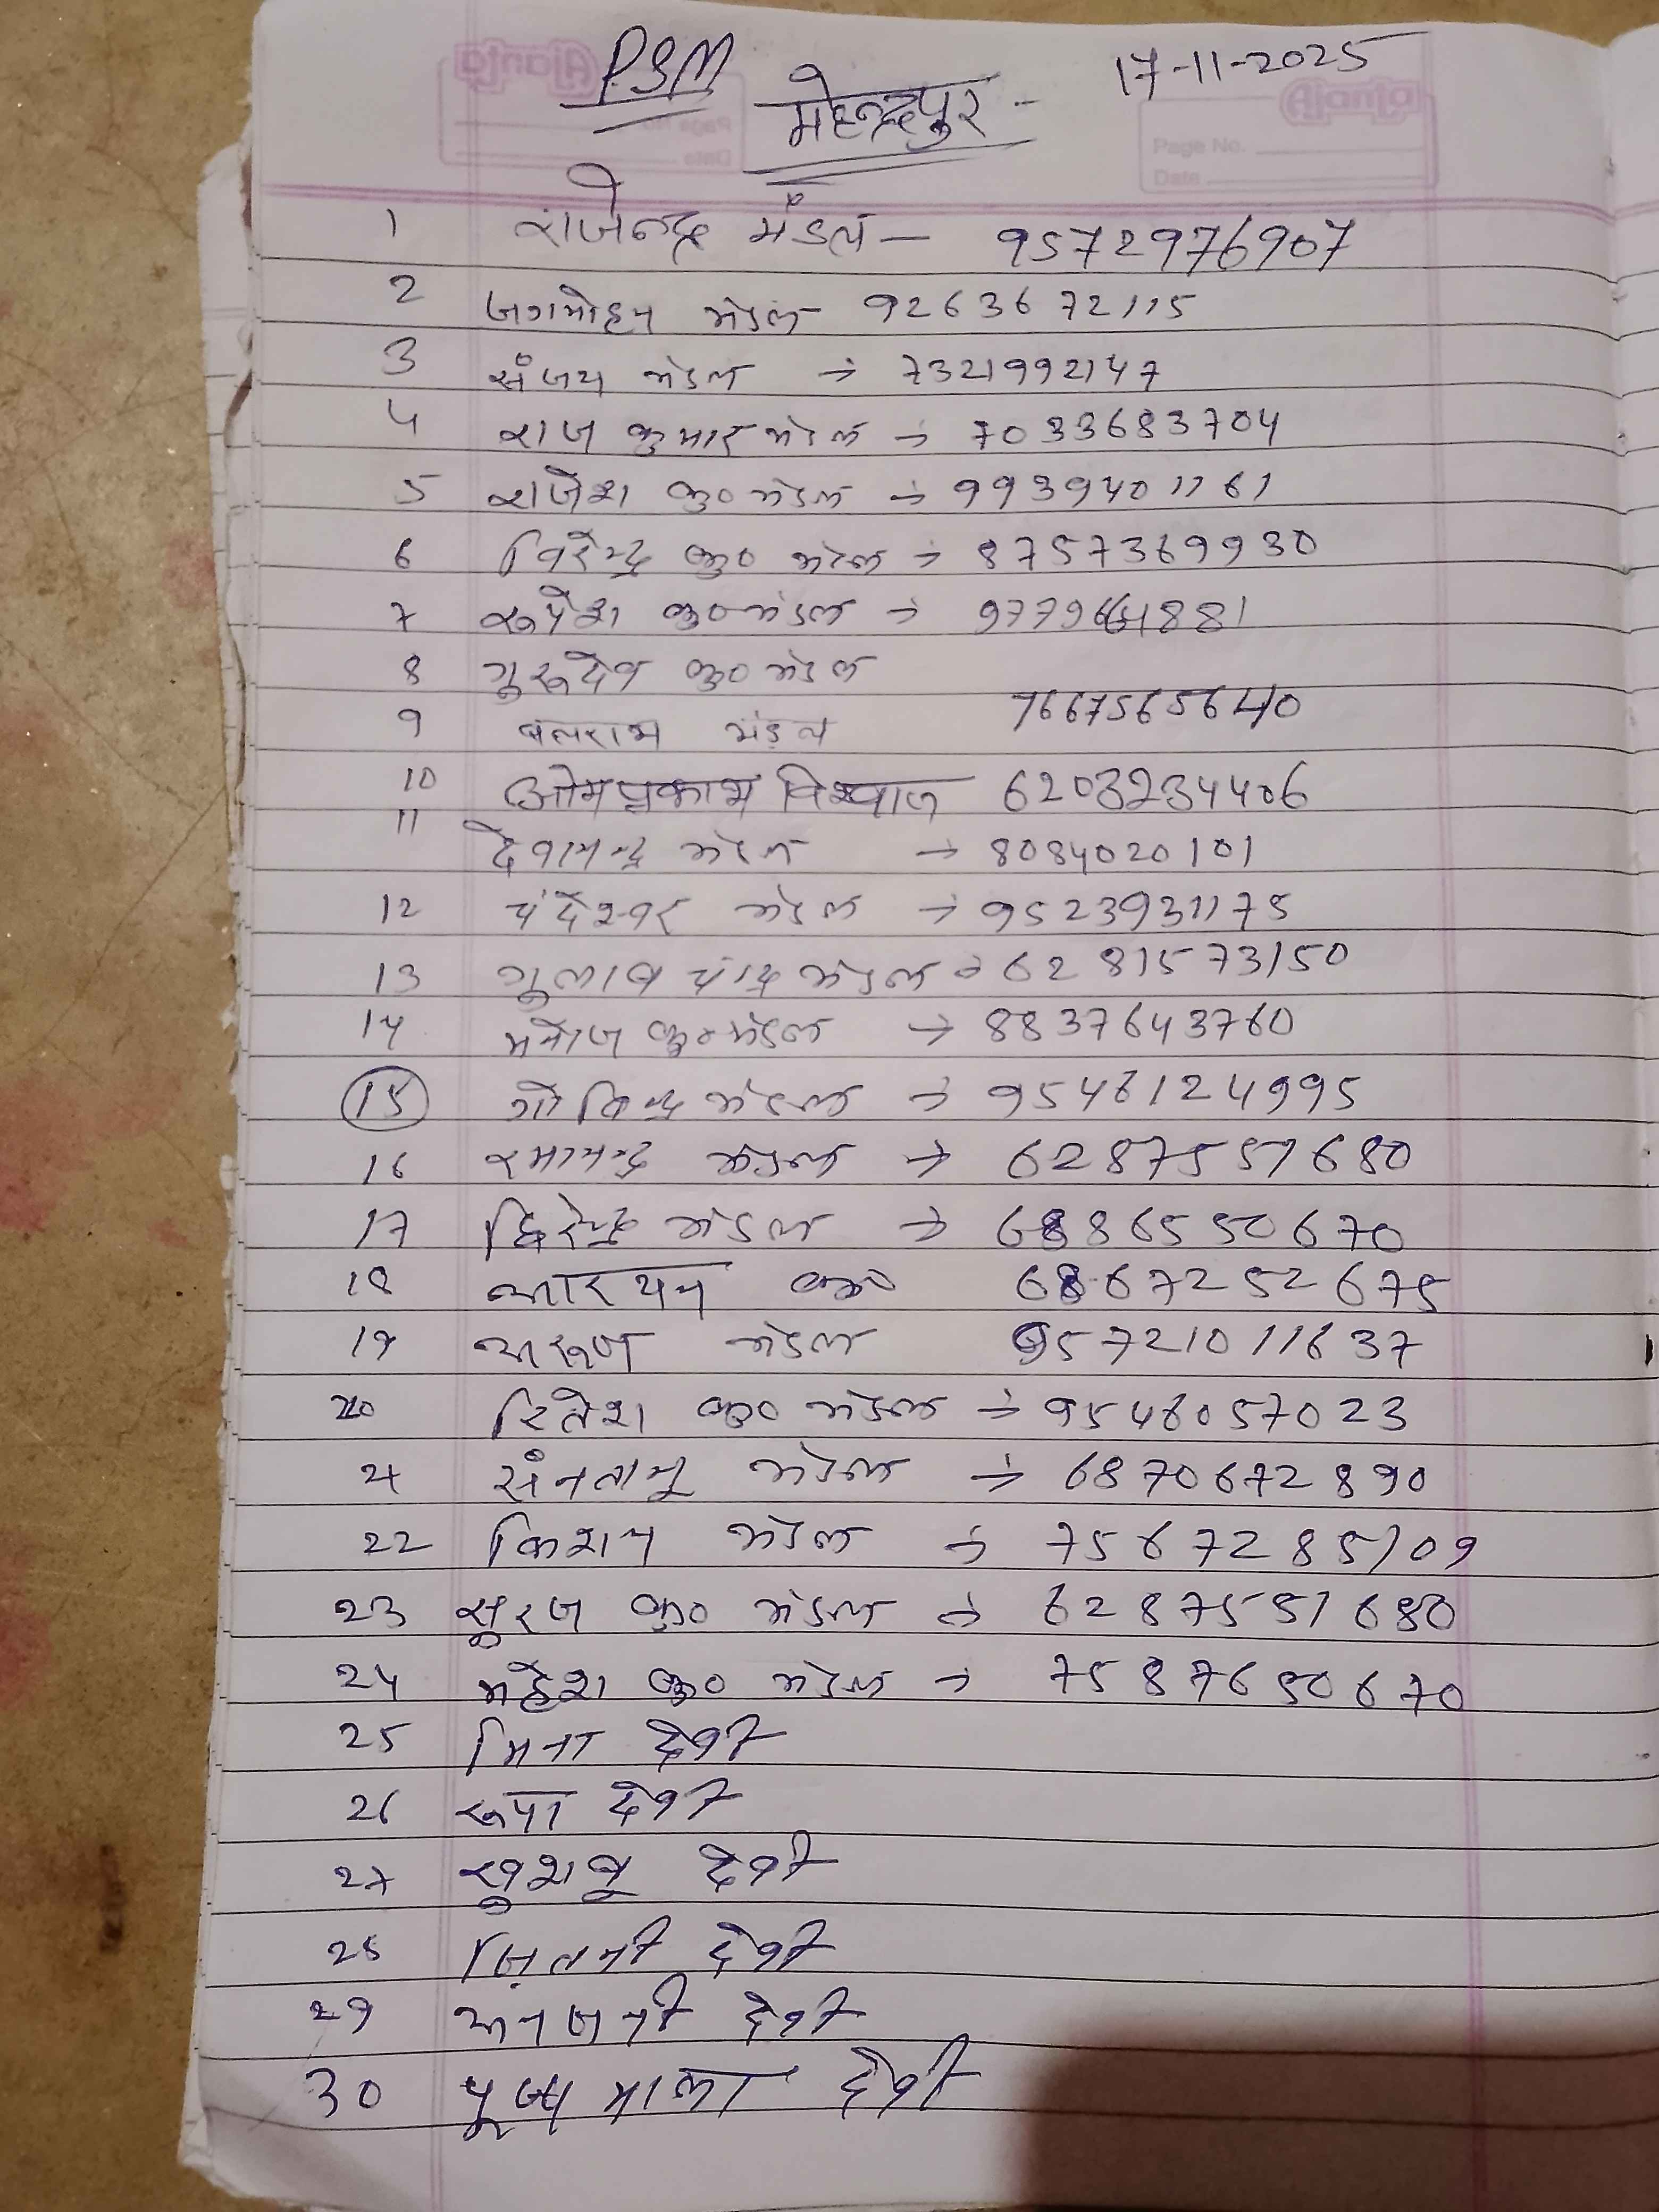 PSM
17-11-2025
महेन्द्रपुर
Ajanta
Page No.
Date
1 राजेन्द्र मंडल — 9572976907
2 जगमोहन मंडल 9263672115
3 संजय मंडल → 7321992147
4 राज कुमार मंडल → 7033683704
5 राजेश कु० मंडल → 9939401161
6 विरेन्द्र कु० मंडल → 8757369930
7 रूपेश कु० मंडल →
8 गुरूदेव कु० मंडल
9 बलराम मंडल 7667565640
10 ओमप्रकाश विश्वास 6203234406
11 देवानन्द मंडल → 8084020101
12 चंदेश्वर मंडल → 9523931175
13 गुलाब चंद्र मंडल → 6281573150
14 मनोज कु० मंडल → 8837643760
15 गोविन्द मंडल → 9546124995
16 रमानन्द मंडल → 6287551680
17 मंडल → 6886550670
18 आरयन कु० 6867252675
19 अरूण मंडल 95721011637
20 रितेश कु० मंडल → 9546057023
21 मंडल → 6870672890
22 किशन मंडल → 7567285109
23 सूरज कु० मंडल → 6287551680
24 महेश कु० मंडल → 7587650670
25 मिना देवी
26 रूपा देवी
27 खुशबू देवी
28 देवी
29 अनजनी देवी
30 माला देवी